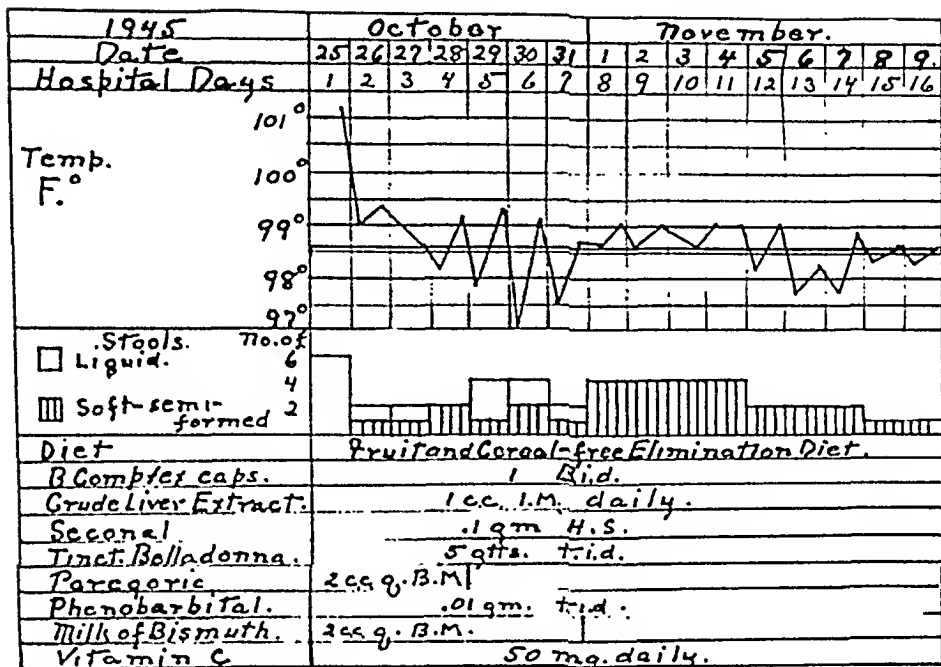 1945 October November.
Date 25 26 27 28 29 30 31 1 2 3 4 5 6 7 8 9.
Hospital Days 1 2 3 4 5 6 7 8 9 10 11 12 13 14 15 16
101°
Temp.
100°
F.°
99°
98°
97°
Stools. No. of
Liquid. 6
4
Soft-semi- 2
formed
Diet Fruit and Cereal-free Elimination Diet.
B Complex caps. 1 B.i.d.
Crude Liver Extract. 1 cc. I.M. daily.
Seconal .1 gm H.S.
Tinct. Belladonna. 5 gtts. t.i.d.
Paregoric 2 cc q. B.M.
Phenobarbital. .01 gm. t.i.d.
Milk of Bismuth. 2 cc q. B.M.
Vitamin C 50 mg. daily.